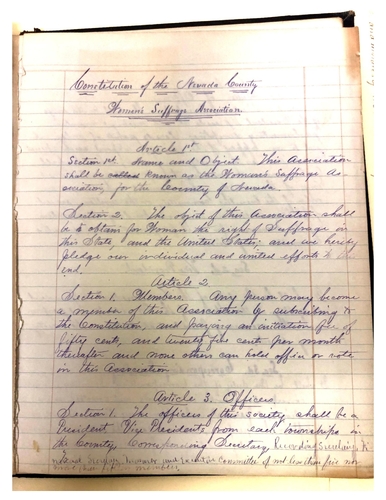 Constitution of the Nevada County
Woman's Suffrage Association.
Article 1st
Section 1st. Name and Object. This Association
shall be called known as the Woman's Suffrage As
sociation, for the County of Nevada.
Section 2. The object of this Association shall
be to obtain for Woman the right of Suffrage in
this State, and the United States; and we hereby
pledge our individual and united efforts to this
end.
Article 2
Section 1. Members. Any person may become
a member of this Association by subscribing to
the Constitution, and paying an initiation fee of
fifty cents, and twenty five cents per month
thereafter and none others can hold office or vote
in this Association
Article 3. Officers.
Section 1. The officers of this Society shall be a
President Vice Presidents from each townships in
the County, Corresponding Secretary, Recording Secretary,
and Executive Committee of not less than five nor
members